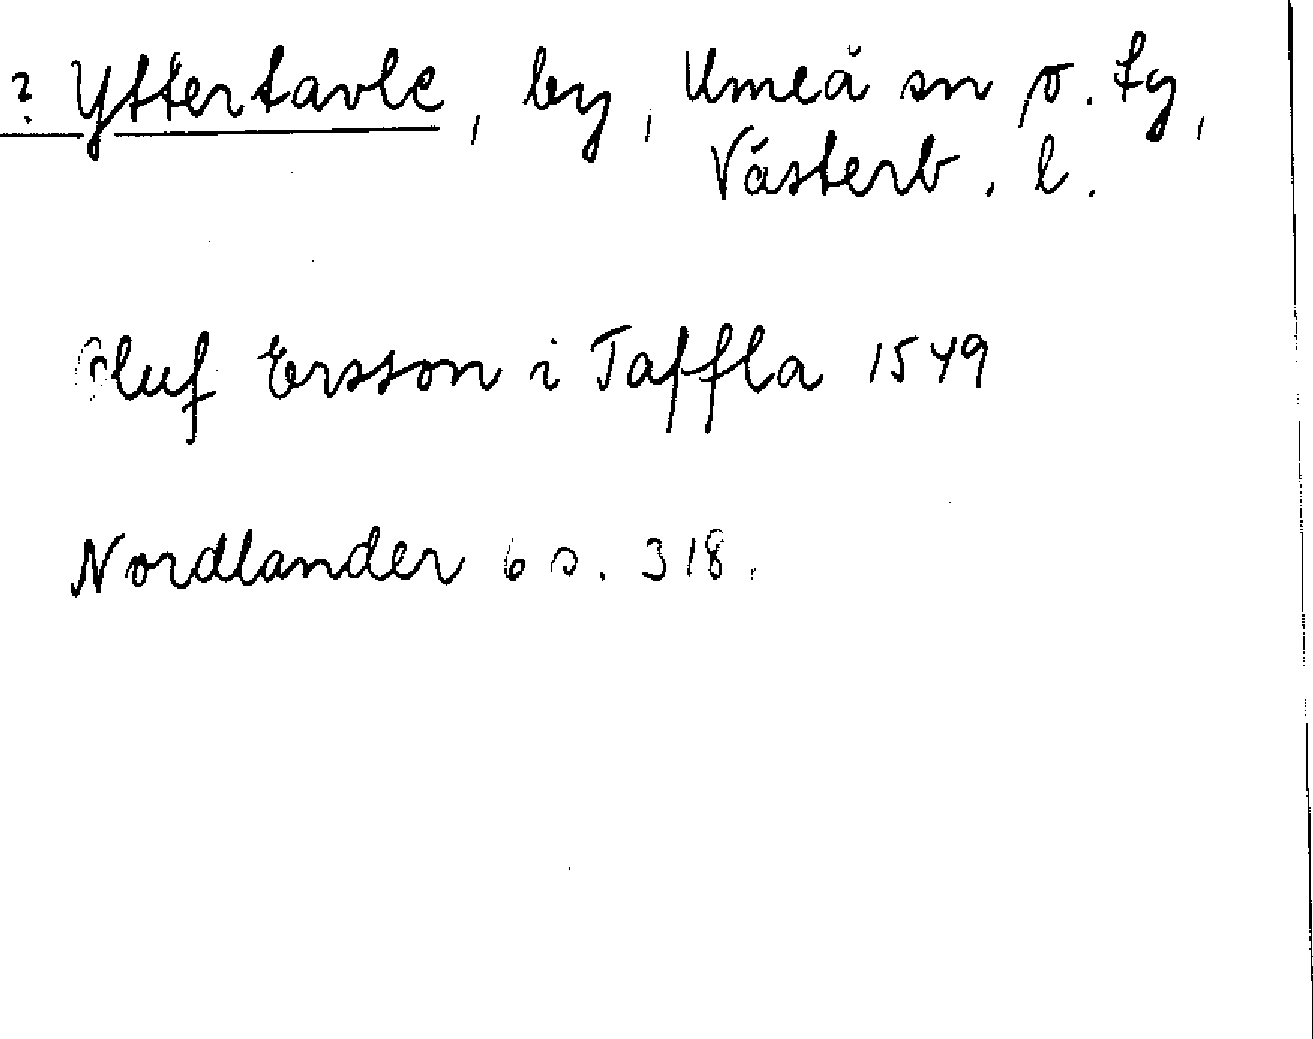 ? Yttertavle, by, Umeå sn o. tg,
Västerb. l.
Oluf Ersson i Taffla 1549
Nordlander 6 s. 318.